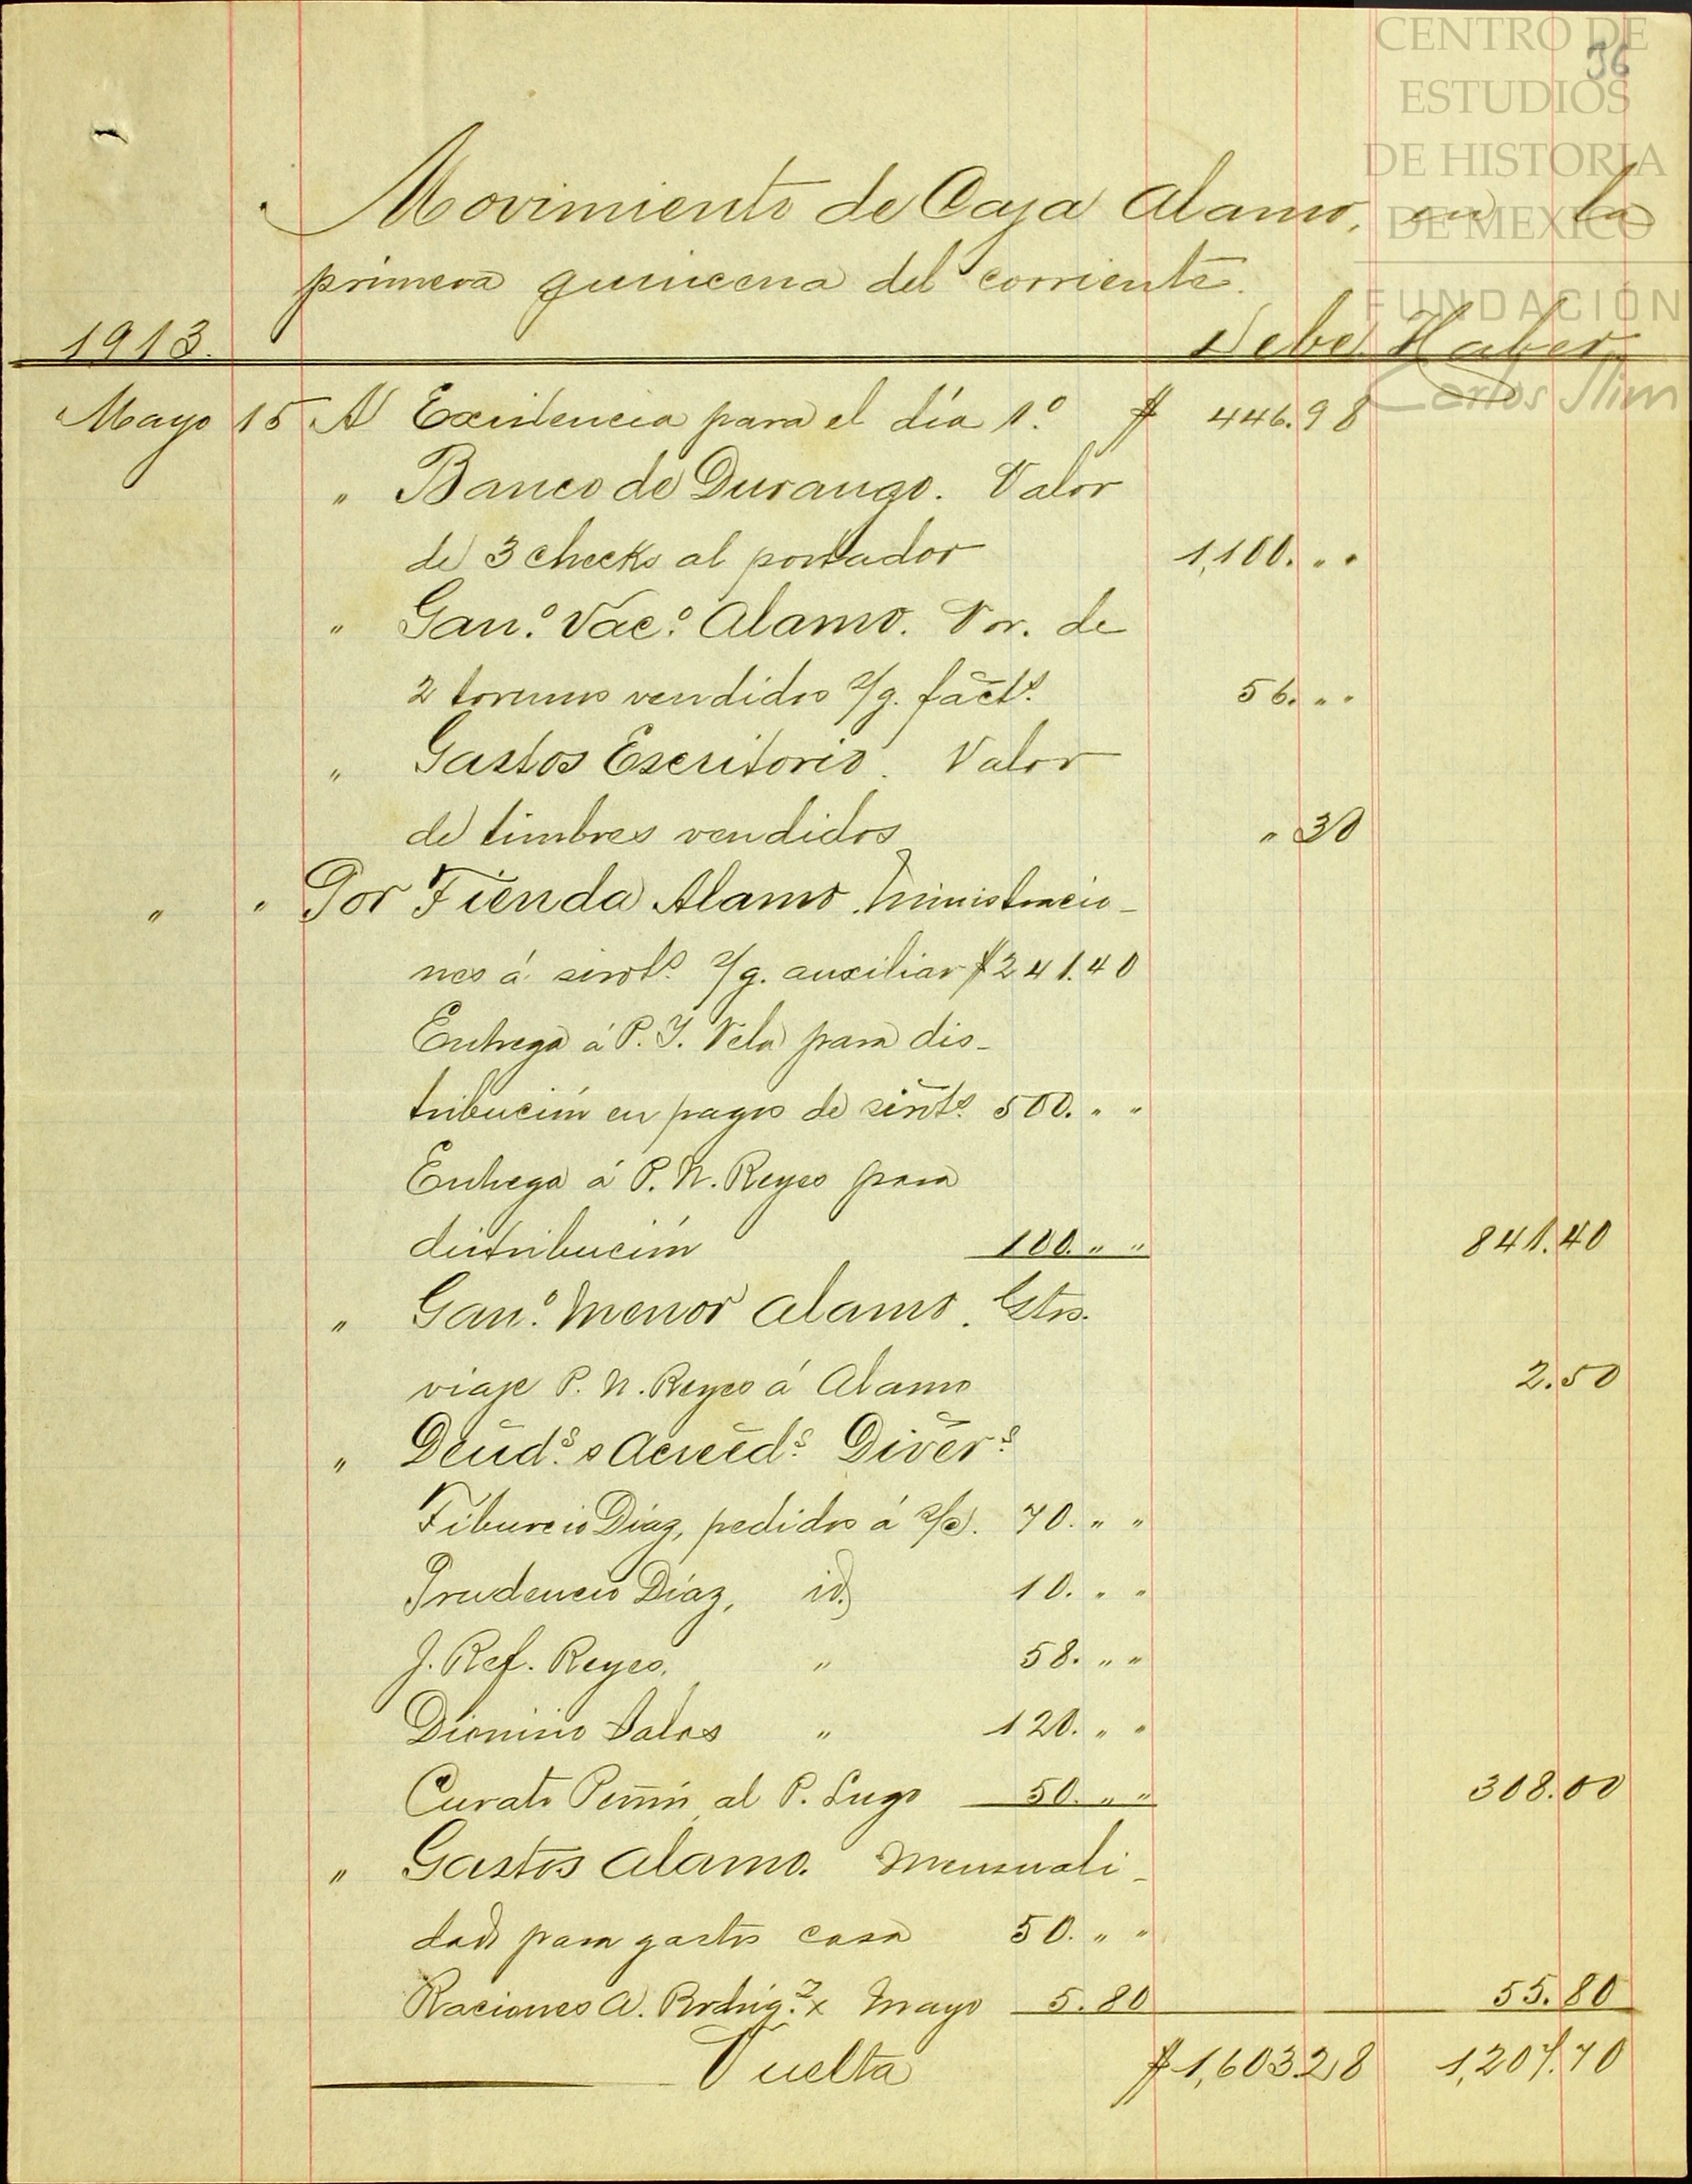 CENTRO DE
ESTUDIOS
DE HISTORIA
DE MEXICO
FUNDACIÓN
Carlos Slim
96
Movimiento de Caja Alamo, en la
primera quincena del corriente.
1913. Debe Haber
Mayo 15 A Existencia para el día 1.º $ 446.98
" Banco de Durango. Valor
de 3 checks al portador 1,100. " "
" Gan.º Vac.º Alamo. Vor. de
2 torunos vendidos s/g. fact.ª 56. " "
" Gastos Escritorio. Valor
de timbres vendidos " 30
" " Por Tienda Alamo. Ministracio-
nes á sirvts. s/g. auxiliar $241.40
Entrega á P. Y. Vela para dis-
tribución en pagos de sirvts. 500. " "
Entrega á P. N. Reyes para
distribución 100. " " 841.40
" Gan.º Menor Alamo. Gtos.
viaje P. N. Reyes á Alamo 2.50
" Deud.s o Acreed.s Divers.s
Tiburcio Díaz, pedidos á s/c. 70. " "
Prudencio Díaz, id. 10. " "
J. Ref. Reyes, " 58. " "
Dionisio Salas " 120. " "
Curato Peñón, al P. Lugo 50. " " 308.00
" Gastos Alamo. Mensuali-
dad para gastos casa 50. " "
Raciones A. Rodrig.z x Mayo 5.80 55.80
Vuelta $1,603.28 1,207.70